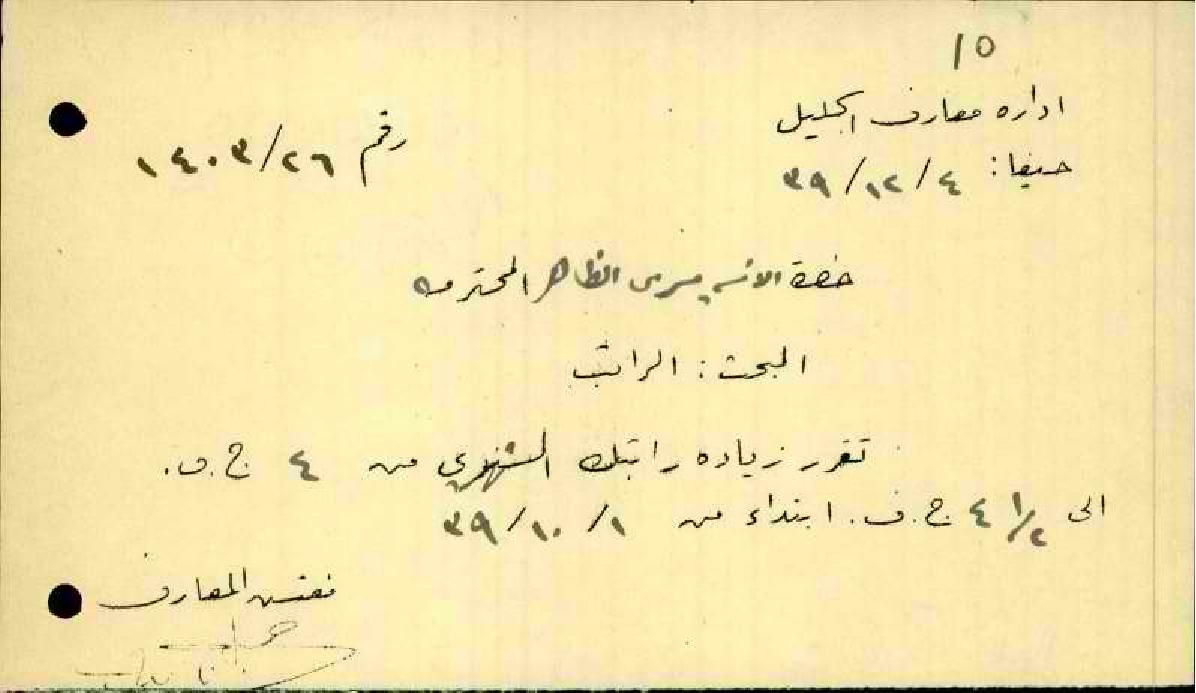 ١٥
اداره معارف الجليل
حيفا: ٤/١٢/٣٩
رقم ١٤٠٣/٢٦
حضرة الانسه يسرى الظاهر المحترمه
المبحث: الراتب
تقرر زياده راتبك الشهري من ٤ ج.ف.
الى ٤ ١/٢ ج.ف. ابتداء من ١/١٠/٣٩
مفتش المعارف